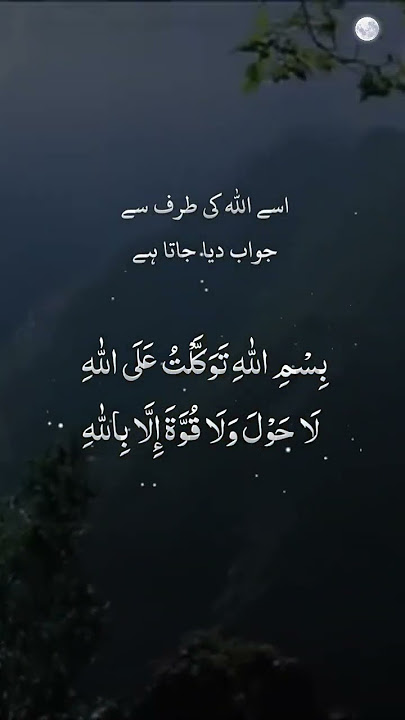 اسے اللہ کی طرف سے
جواب دیا جاتا ہے
بِسْمِ اللهِ تَوَكَّلْتُ عَلَى اللهِ
لَا حَوْلَ وَلَا قُوَّةَ إِلَّا بِاللهِ